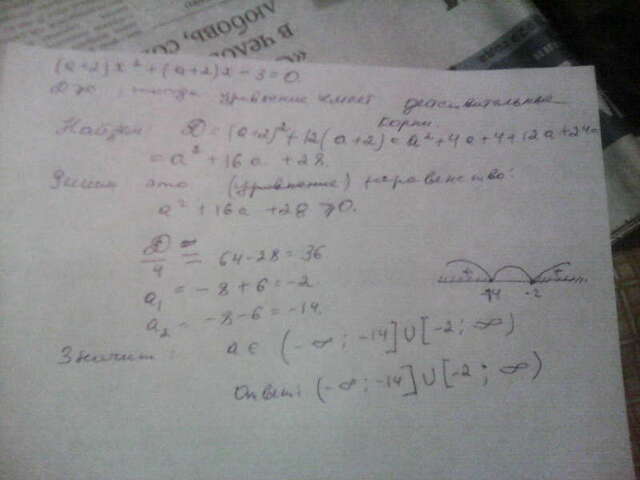 В ЧЕЛО
ЛЮБОВЬ, СО
(a+2)x²+(a+2)x-3=0.
D≥0, тогда уравнение имеет действительные
корни
Найдем D=(a+2)²+12(a+2)=a²+4a+4+12a+24=
=a²+16a+28.
Решим это (уравнение) неравенство:
a²+16a+28≥0.
D/4 = 64-28=36
a₁ = -8+6=-2.
a₂ = -8-6=-14.
+ +
-14 -2
Значит: a∈(-∞;-14]∪[-2;∞)
Ответ: (-∞;-14]∪[-2;∞)